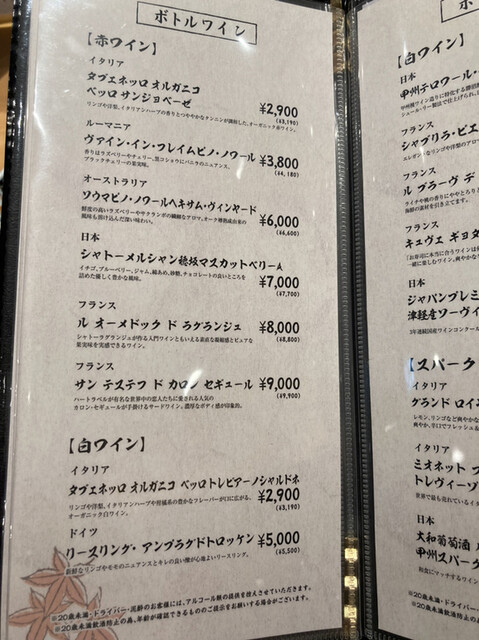 ボトルワイン
【赤ワイン】
イタリア
タヴエネッロ オルガニコ
ベッロ サンジョベーゼ
¥2,900
(¥3,190)
ルーマニア
ヴァイン・イン・フレイムピノ・ノワール
¥3,800
(¥4,180)
香りはラズベリーやチェリー、黒コショウにバニラのニュアンス。
ブラックチェリーの果実味。
オーストラリア
ソウマピノ・ノワールヘキサム・ヴィンヤード
¥6,000
(¥6,600)
鮮度の高いラズベリーやサクランボの繊細なアロマ、オーク樽熟成由来の
風味も溶け込んだ深い味わい。
日本
シャトーメルシャン穂坂マスカットベリーA
¥7,000
(¥7,700)
イチゴ、ブルーベリー、ジャム、綿あめ、砂糖、チョコレートの良いところを
詰めた優しく豊かな風味。
フランス
ル オーメドック ド ラグランジュ
¥8,000
(¥8,800)
シャトーラグランジュが作る入門ワインともいえる素直な凝縮感とピュアな
果実味を実感できるワイン。
フランス
サン テステフ ド カロン セギュール
¥9,000
(¥9,900)
ハートラベルが有名な世界中の恋人たちに愛される人気の
カロン・セギュールが手掛けるサードワイン。濃厚なボディ感が印象的。
【白ワイン】
イタリア
タヴエネッロ オルガニコ ベッロトレビアーノシャルドネ
¥2,900
(¥3,190)
リンゴや洋梨、イタリアンハーブや柑橘系の豊かなフレーバーが口に広がる、
オーガニック白ワイン。
ドイツ
リースリング・アンプラグドトロッケン
¥5,000
(¥5,500)
新鮮なリンゴやモモのニュアンスとキレの良い酸が心地よいリースリング。
※20歳未満・ドライバー・泥酔のお客様には、アルコール類の提供を控えさせていただきます。
※20歳未満飲酒防止の為、年齢が確認できるもののご提示をお願いする場合がございます。
【白ワイン】
日本
甲州テロワール・
フランス
シャブリラ・ピエ
フランス
ル ブラーヴ デ
フランス
キュヴェ ギヨタ
日本
ジャパンプレミ
津軽産ソーヴィ
3年連続国産ワインコンクール
【スパーク
イタリア
グランド ロイ
イタリア
ミオネット プ
トレヴィーゾ
世界で最も売れているイタ
日本
大和葡萄酒
甲州スパーク
和食にマッチするワイン